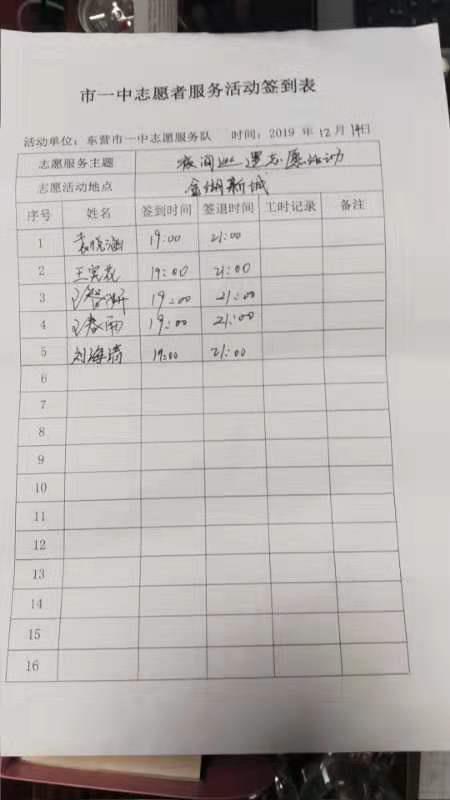 市一中志愿者服务活动签到表
活动单位：东营市一中志愿服务队 时间：2019 年 12 月 14日
志愿服务主题 夜间巡逻志愿活动
志愿活动地点 金湖新城
序号 姓名 签到时间 签退时间 工时记录 备注
1 袁悦涵 19:00 21:00
2 王宪花 19:00 21:00
3 19:00 21:00
4 王春雨 19:00 21:00
5 刘海清 19:00 21:00
6
7
8
9
10
11
12
13
14
15
16